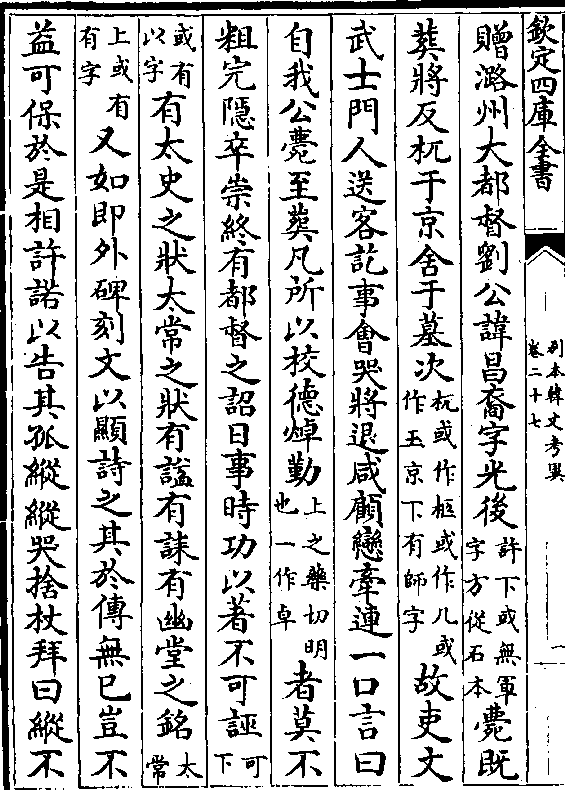 欽定四庫全書
别本韓文考異
卷二十七
一
贈潞州大都督劉公諱昌裔字光後許下或無軍字方從石本薨既
葬將反杌于京舍于墓次杌或作柩或作几或作玉京下有師字故吏文
武士門人送客訖事會哭將退咸顧戀牽連一口言曰
自我公薨至葬凡所以校德焯勤上之藥切明也一作卓者莫不
粗完隱卒崇終有都督之詔日事時功以著不可誣可下
或有以字有太史之狀太常之狀有諡有誄有幽堂之銘太常
上或有有字又如即外碑刻文以顯詩之其於傳無已豈不
益可保於是相許諾以告其孤縱縱哭捨杖拜曰縱不